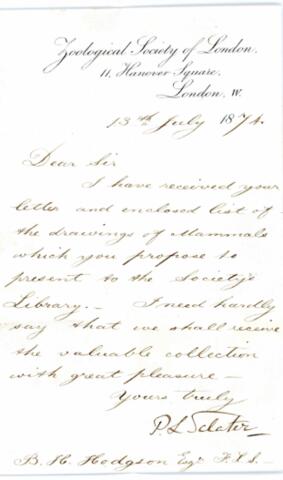 Zoological Society of London.
11, Hanover Square,
London, W.
13th July 1874.
Dear Sir
I have received your
letter and enclosed list of
the drawings of Mammals
which you propose to
present to the Society's
Library._ I need hardly
say that we shall receive
the valuable collection
with great pleasure_
Yours truly
P L Sclater_
B. H. Hodgson Esqr F.L.S_